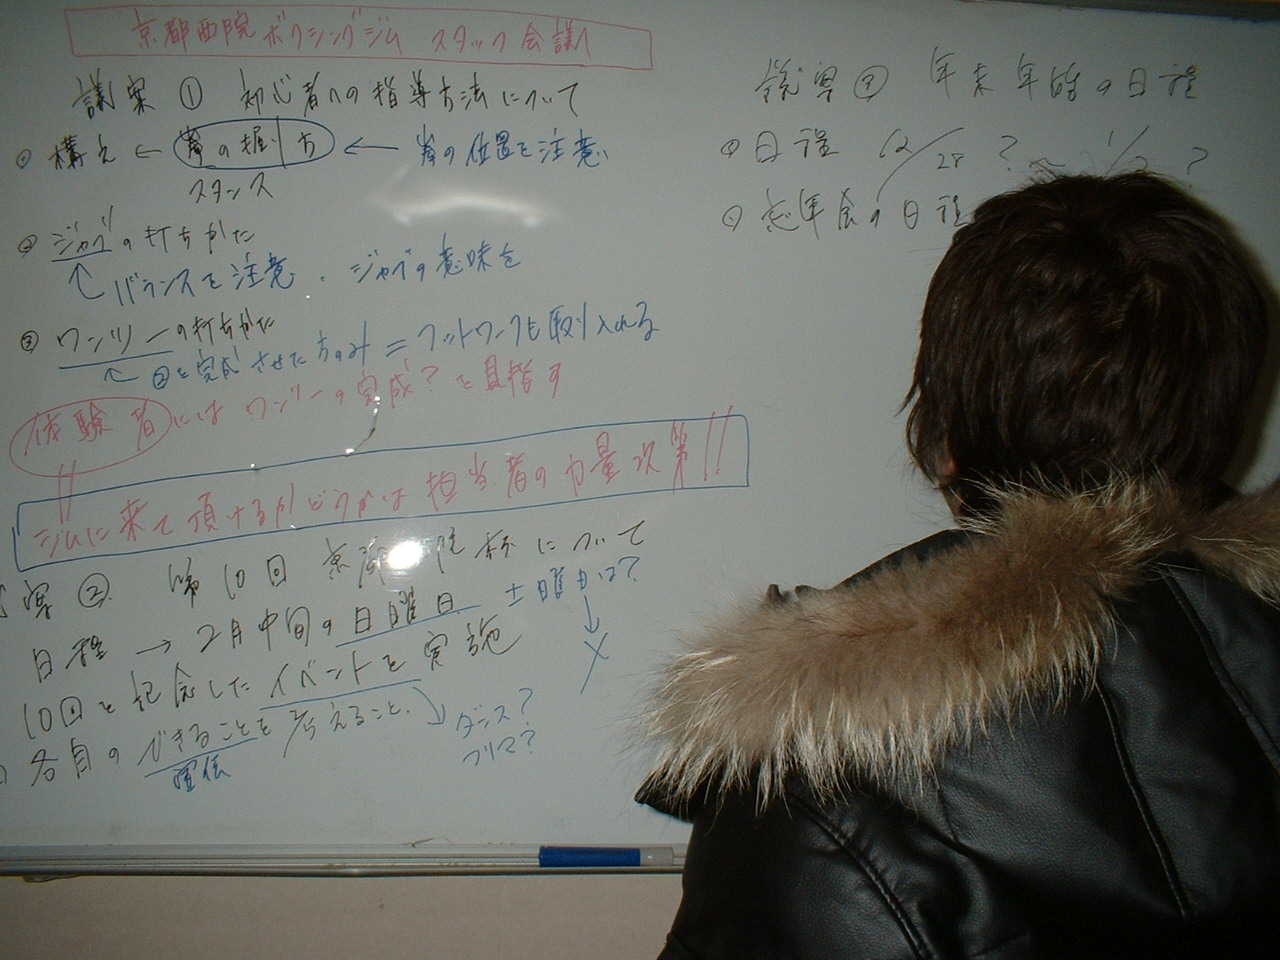 京都西院ボクシングジム スタッフ会議
議案 ① 初心者への指導方法について
① 構え ← 拳の握り方 ← 拳の位置を注意
スタンス
② ジャブの打ちかた
↑ バランスを注意・ジャブの意味を
③ ワンツーの打ちかた
↑ ②を完成させた方のみ = フットワークも取り入れる
体験者にはワンツーの完成?を目指す
!!
ジムに来て頂けるかどうかは担当者の力量次第!!
案 ② 第10回 京都 院杯について
日程 → 2月中旬の日曜日 土曜日は?
↓
×
10回を記念したイベントを実施
各自のできることを考えること。
宣伝
ダンス?
フリマ?
議案 ③ 年末年始の日程
① 日程 12/28 ? ~ 1/ ?
② 忘年会の日程